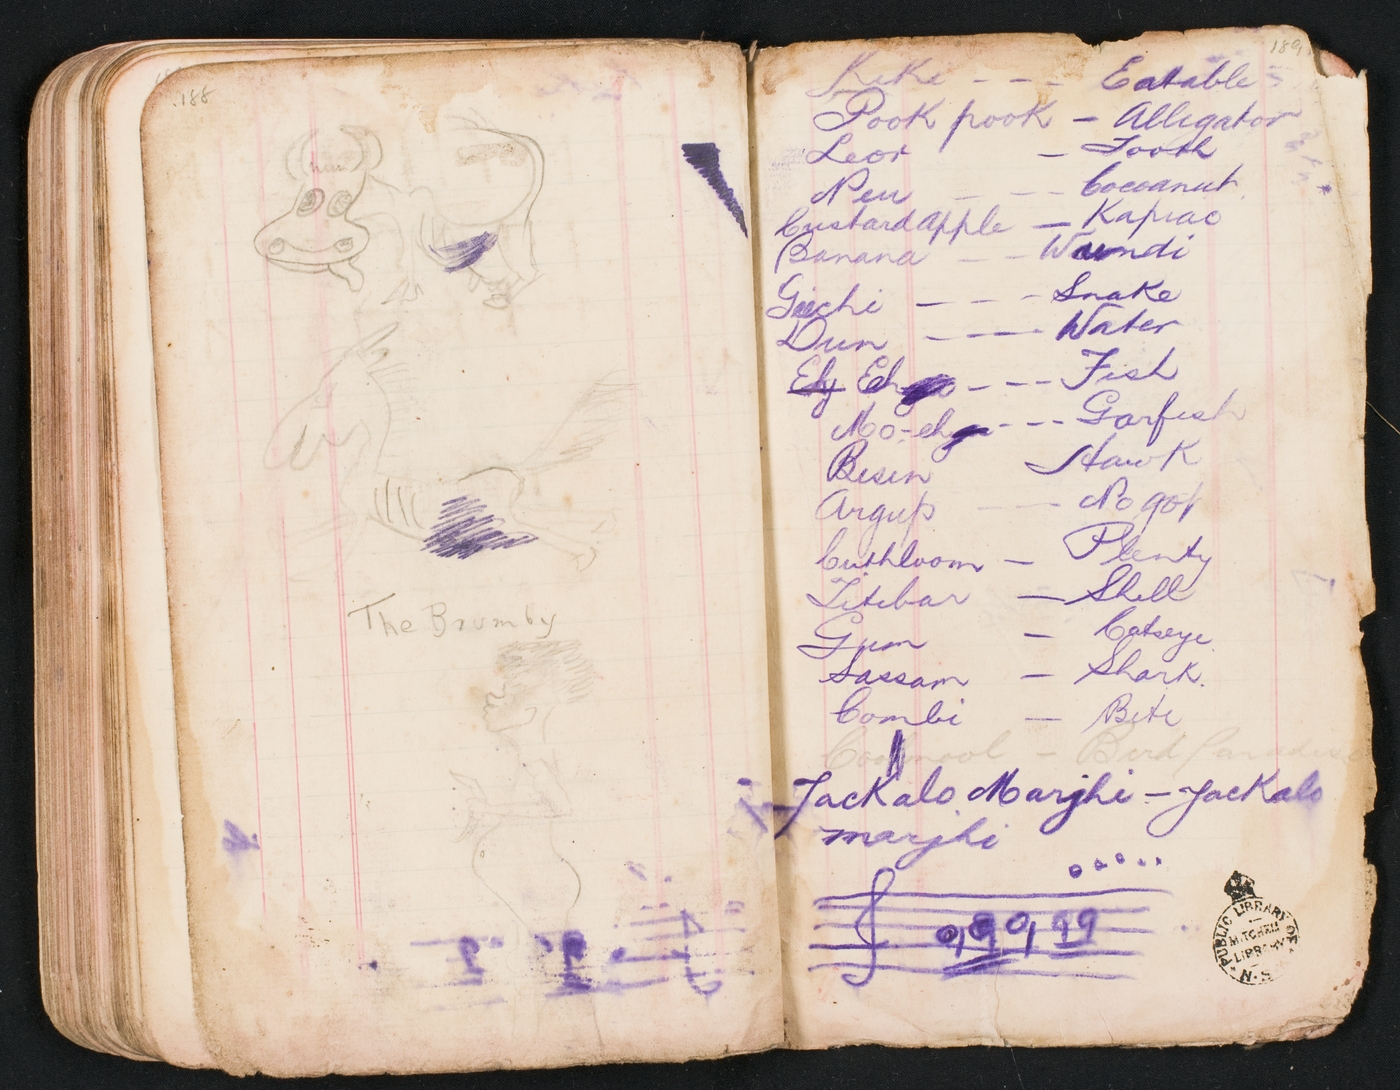 .188
The Brumby
189
KeKe - - - Eatable
Pook pook - Alligator
Leor - Tooth
Neu - - - Cocoanut
Custardapple - Kapiac
Banana - - Waundi
Giechi - - - Snake
Dun - - - Water
Ely Eh - - - Fish
Mo-eh - - - Garfish
Besin Hawk
Argup - - No got
Cuthloom - Plenty
Titibar - Shell
Gum - Catseye
Sassam - Shark.
Combi - Bite
Coolmool - Bird Paradise
Jackalo Marjhi - Jackalo
marjhi
PUBLIC LIBRARY OF N.S.
MITCHELL
LIBRARY